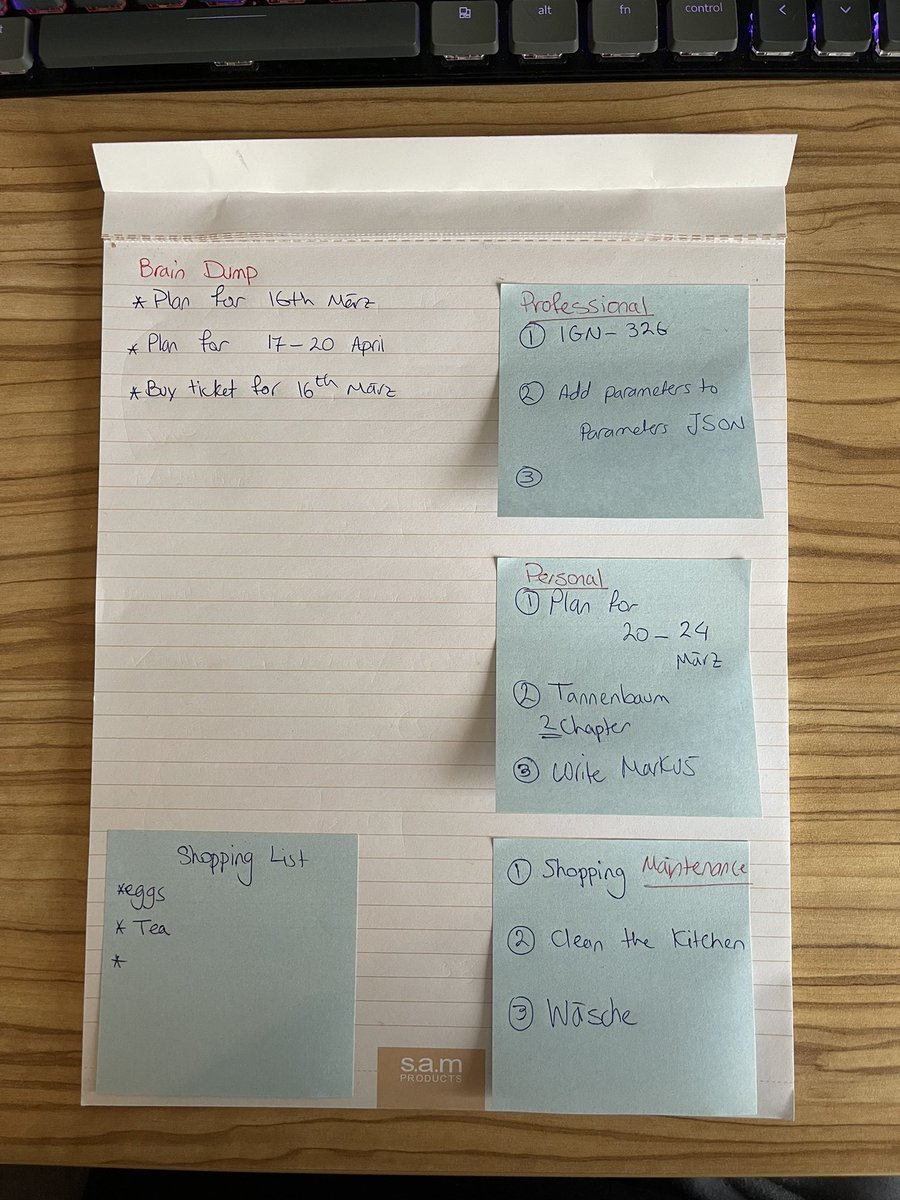 alt
fn
control
Brain Dump
* Plan for 16th März
* Plan for 17-20 April
* Buy ticket for 16th März
Professional
① IGN-326
② Add parameters to
Parameters JSON
③
Personal
① Plan for
20-24
März
② Tannenbaum
2 Chapter
③ Write Markus
Shopping List
*eggs
* Tea
*
① Shopping Maintenance
② Clean the Kitchen
③ Wäsche
s.a.m
PRODUCTS